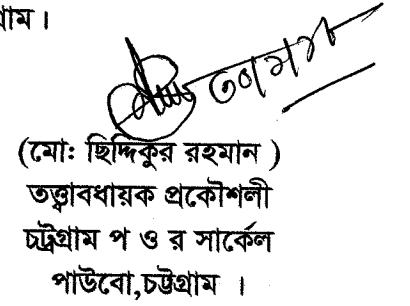 গ্রাম।
(মো: ছিদ্দিকুর রহমান )
তত্ত্বাবধায়ক প্রকৌশলী
চট্রগ্রাম প ও র সার্কেল
পাউবো,চট্টগ্রাম ।